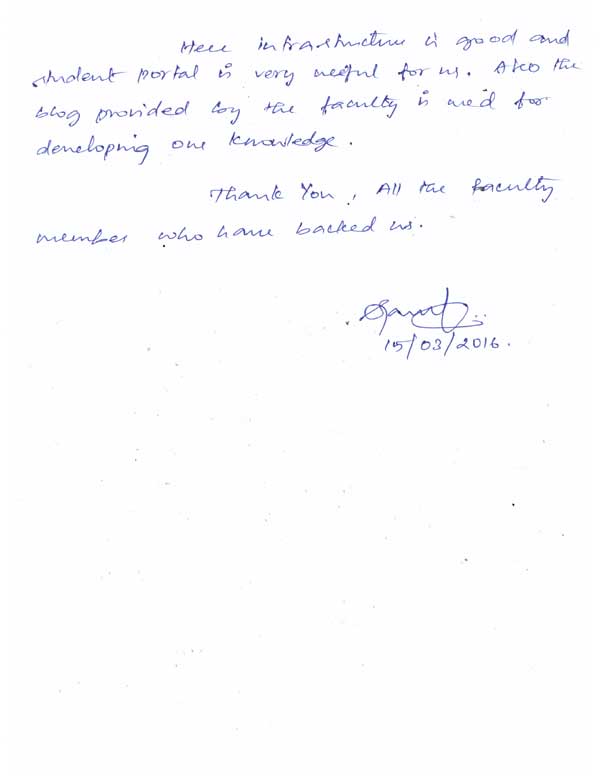 Here infrastructure is good and
student portal is very useful for us. Also the
blog provided by the faculty is used for
developing our knowledge.
Thank You, All the faculty
member who have backed us.
15/03/2016.